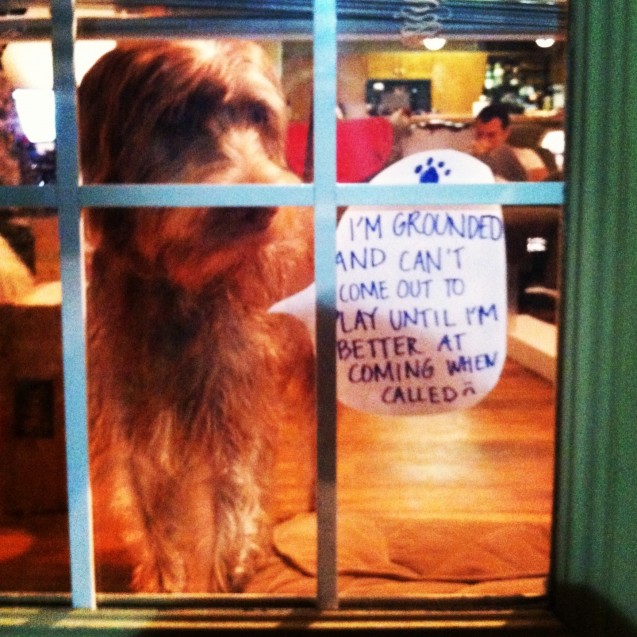 I'M GROUNDED
AND CAN'T
COME OUT TO
PLAY UNTIL I'M
BETTER AT
COMING WHEN
CALLED